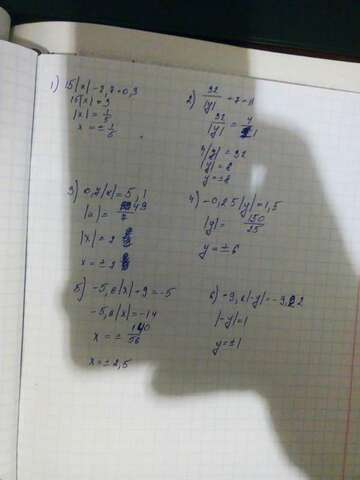 1) 15|x| - 2,7 = 0,3
15|x| = 3
|x| = 1/5
x = ± 1/5
2) 32/|y| + 7 = 11
32/|y| = 4/1
4|y| = 32
|y| = 8
y = ± 8
3) 0,7|x| = 5,1
|x| = 2
x = ± 2
4) -0,25|y| = 1,5
|y| = 150/25
y = ± 6
5) -5,6|x| + 9 = -5
-5,6|x| = -14
x = ± 140/56
x = ± 2,5
6)
|-y| = 1
y = ± 1